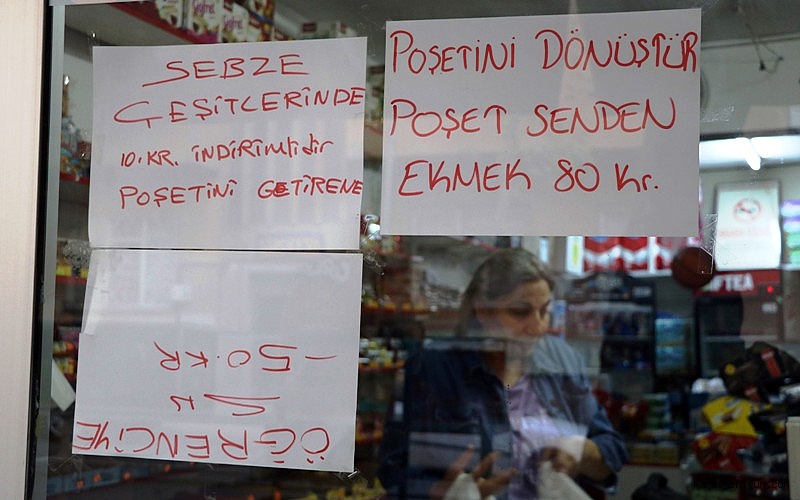 SEBZE
ÇEŞİTLERİNDE
10.KR. İNDİRİMlidir
POŞETİNİ GETİRENE
POŞETİNİ DÖNÜŞTÜR
POŞET SENDEN
EKMEK 80 Kr.
ÖĞRENCİYE
SU
- 50.KR